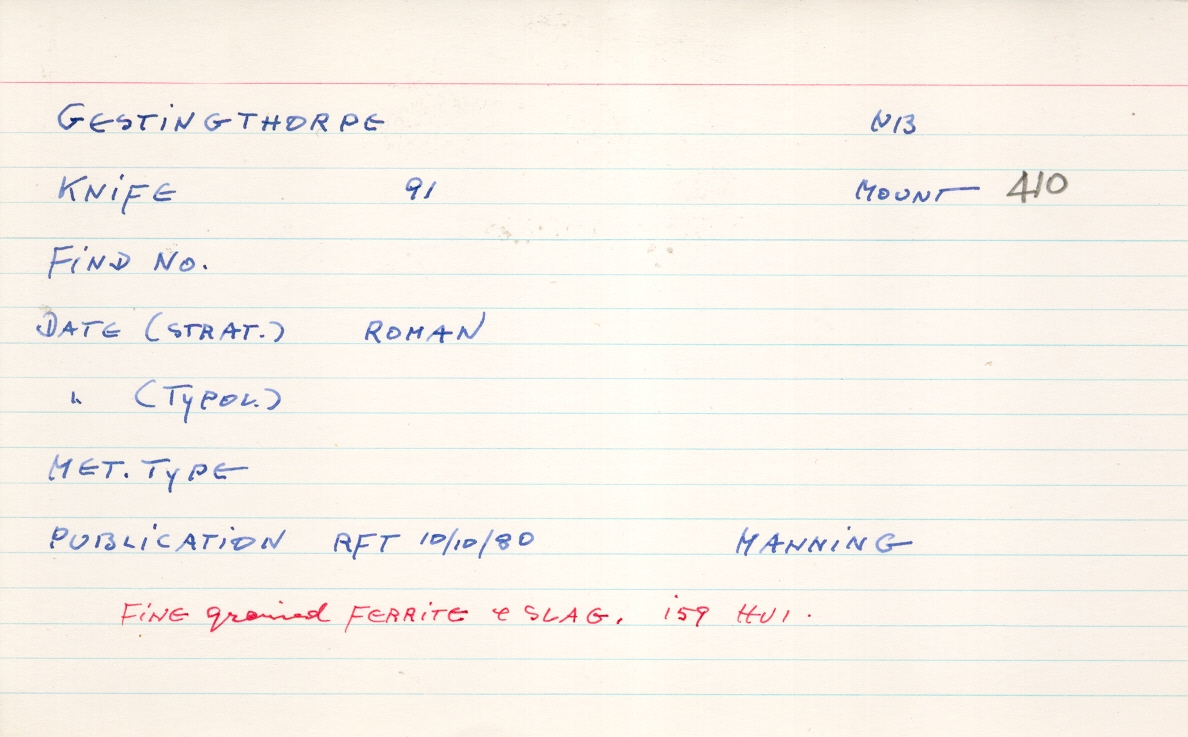 GESTINGTHORPE N13
KNIFE 91 MOUNT 410
FIND NO.
DATE (STRAT.) ROMAN
" (TYPOL.)
MET. TYPE
PUBLICATION RFT 10/10/80 MANNING
FINE grained FERRITE & SLAG. 159 HV1.